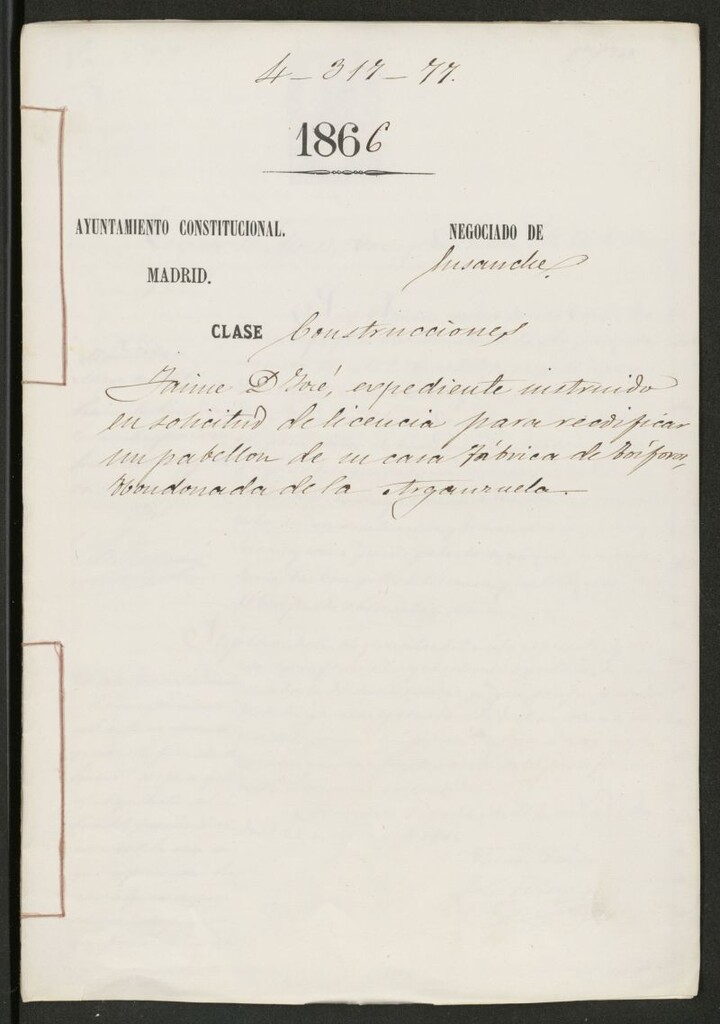 4-317-77.
1866
AYUNTAMIENTO CONSTITUCIONAL.
MADRID.
NEGOCIADO DE
Ensanche.
CLASE Construcciones
Jaime D. José, expediente instruido
en solicitud de licencia para reedificar
un pabellon de su casa fábrica de fósforos,
Hondonada de la Arganzuela.